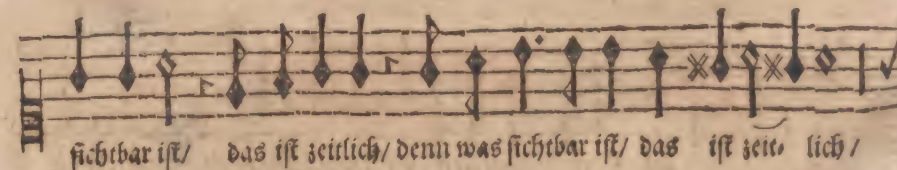 sichtbar ist/ das ist zeitlich/ denn was sichtbar ist/ das ist zeit⸗ lich/